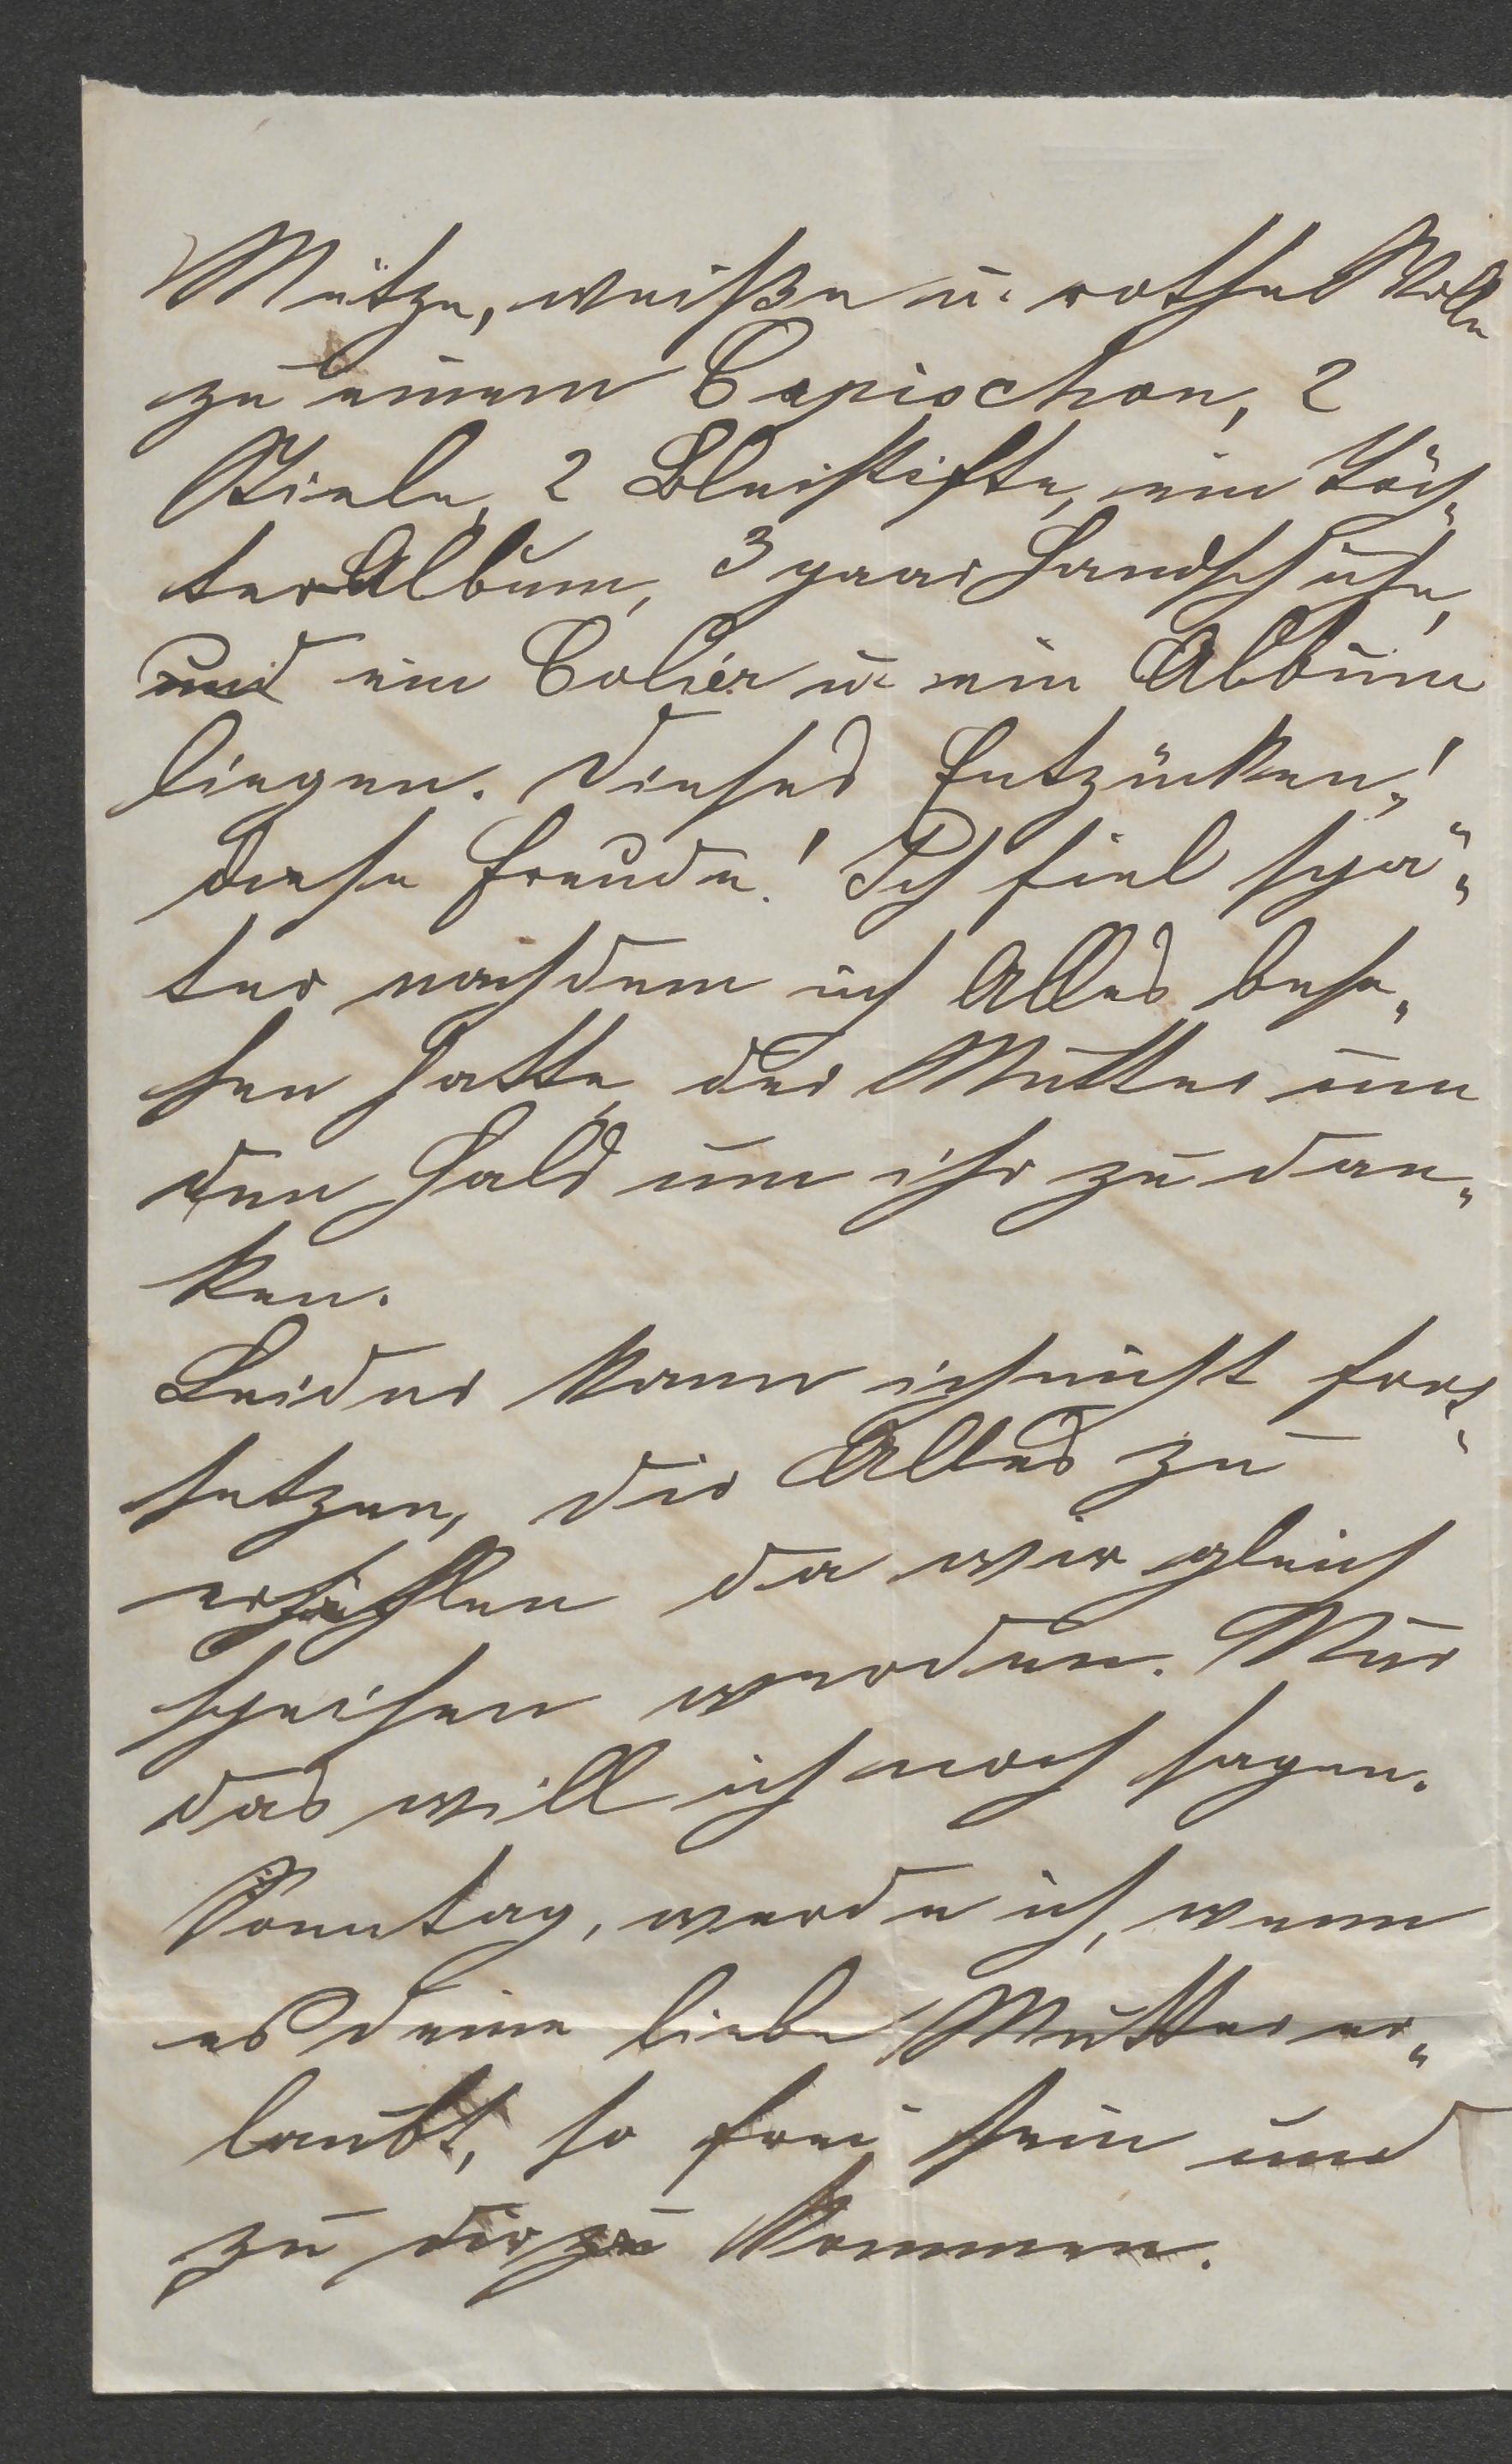 Mütze, weiße u. rothe Wolle
zu einem Capischon, 2
Stiele, 2 Bleistifte, ein Töch„
ter Album, 3 paar Handschuhe,
und ein Colier u. ein Album
liegen. Dieses Entzücken!
diese Freude! Ich fiel spä„
ter nachdem ich Alles bese„
hen hatte, der Mutter um
den Hals um ihr zu dan„
ken.
Leider kann ich nicht fort„
setzen, dir Alles zu
erzählen da wir gleich
speisen werden. Nur
das will ich noch sagen.
Sonntag, werde ich, wenn
es deine liebe Mutter er„
laubt, so frei sein und
zu dir zu kommen.